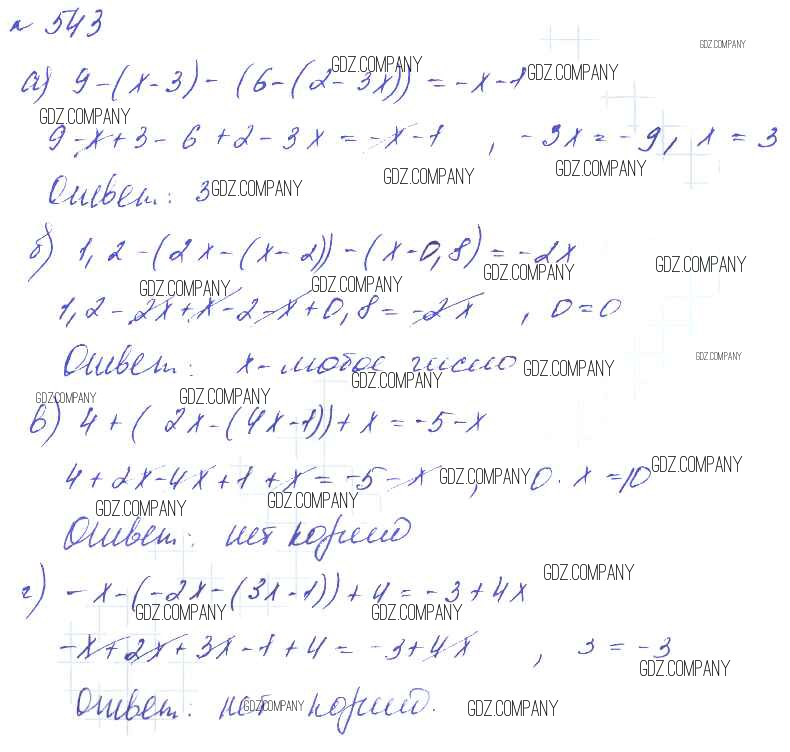 № 543
GDZ.COMPANY
а) 9-(x-3)-(6-(2-3x))=-x-1
GDZ.COMPANY GDZ.COMPANY
GDZ.COMPANY
9-x+3-6+2-3x=-x-1, -3x=-9, x=3
GDZ.COMPANY GDZ.COMPANY
Ответ: 3 GDZ.COMPANY
б) 1,2-(2x-(x-2))-(x-0,8)=-2x
GDZ.COMPANY GDZ.COMPANY
GDZ.COMPANY GDZ.COMPANY
1,2-2x+x-2-x+0,8=-2x, 0=0
GDZ.COMPANY
Ответ: x-любое число GDZ.COMPANY
GDZ.COMPANY
GDZ.COMPANY GDZ.COMPANY
в) 4+(2x-(4x-1))+x=-5-x
4+2x-4x+1+x=-5-x, 0·x=10
GDZ.COMPANY GDZ.COMPANY
GDZ.COMPANY GDZ.COMPANY
Ответ: нет корней
GDZ.COMPANY
г) -x-(-2x-(3x-1))+4=-3+4x
GDZ.COMPANY GDZ.COMPANY
-x+2x+3x-1+4=-3+4x, 3=-3
GDZ.COMPANY
Ответ: нет корней.
GDZ.COMPANY GDZ.COMPANY